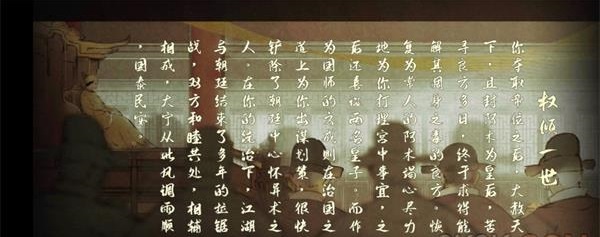 权倾一世
你夺取帝位之后,大赦天
下,且封阿木为皇后,苦
寻良方多日,终于求得能
解其周身之毒的良方,恢
复为常人的阿木竭心尽力
地为你打理宫中事宜,之
后还喜诞两名皇子。而作
为国师的成则在治国之
道上为你出谋划策,很快
铲除了朝廷中心怀异术之
人。在你的统治下,江湖
与朝廷结束了多年的拉锯
战,双方和睦共处,相辅
相成,大宁从此风调雨顺
,国泰民安。